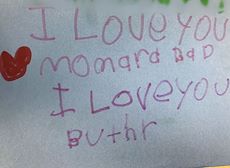 I Love you
momard DaD
I Love you
Buthr